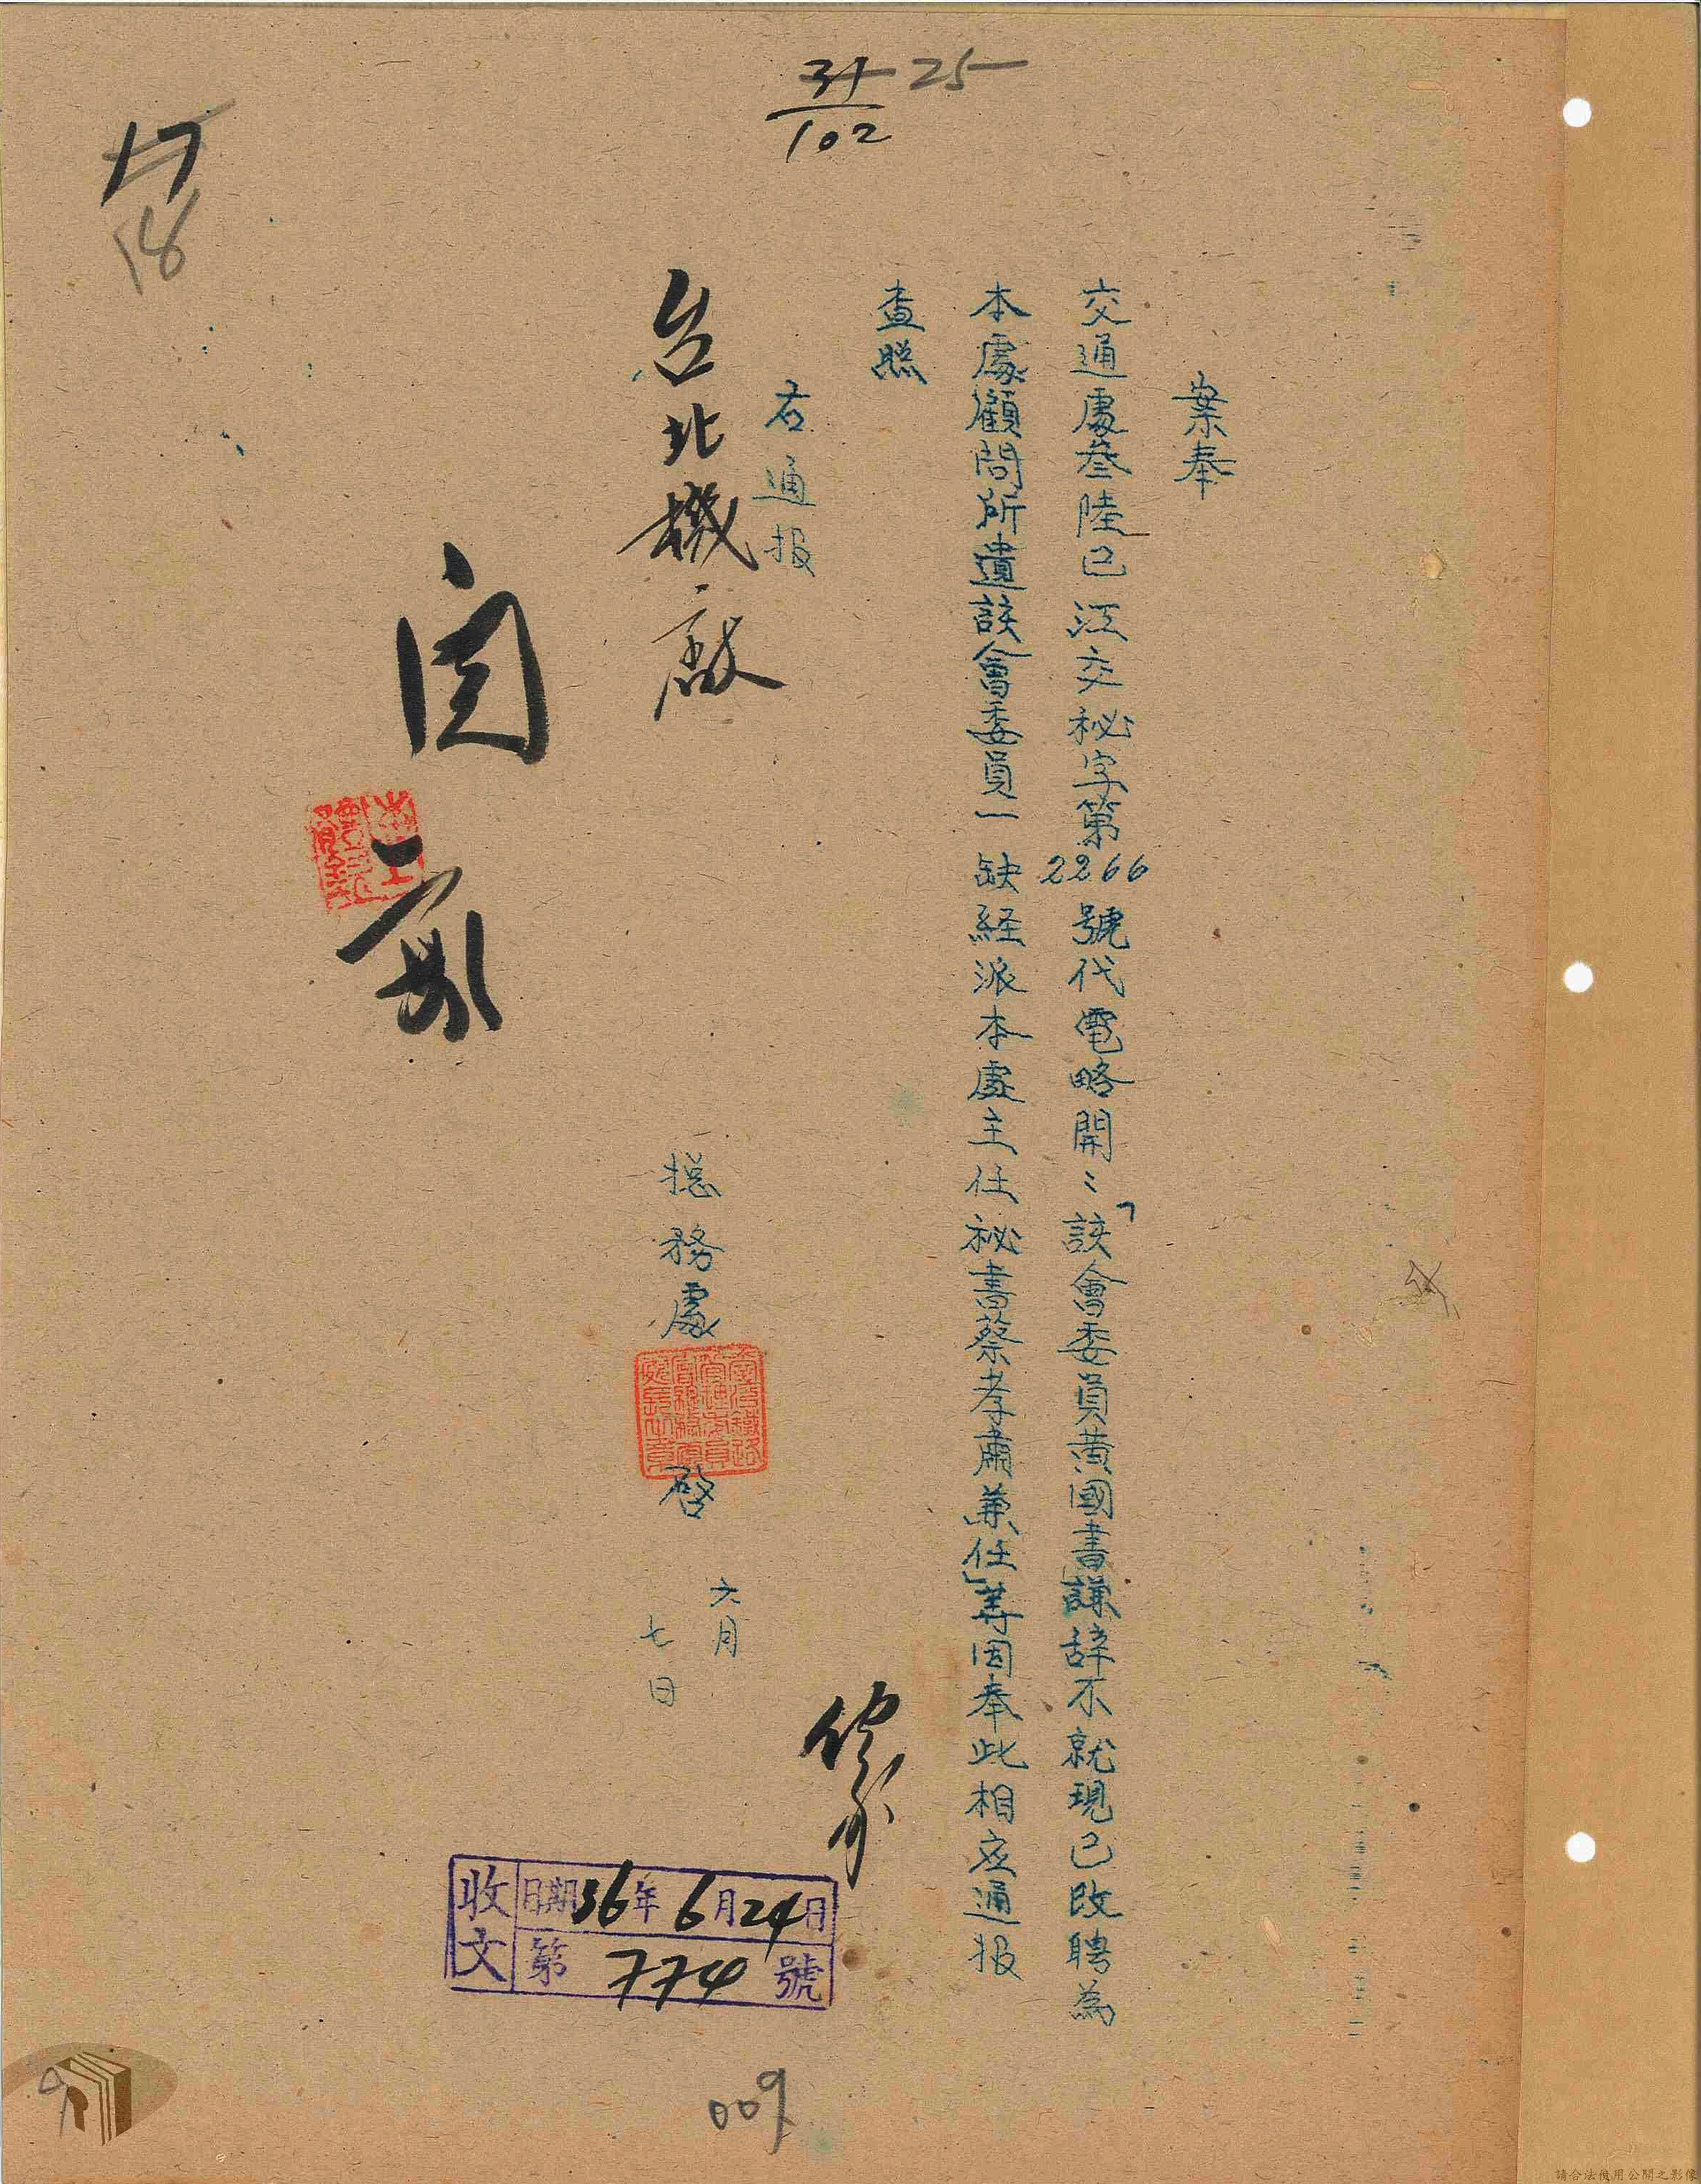 31 25
102
17
18
案奉
交通處叁陸已江交秘字第2266號代電略開:「該會委員黃國書謙辞不就現已改聘為
本處顧問所遺該會委員一缺経派本處主任秘書蔡孝肅兼任」等因奉此相应通报
查照
右通报
台北機廠
總務處
啓
六月
七日
閱
收文
日期36年6月24日
第774號
009
9
請合法使用公開之影像